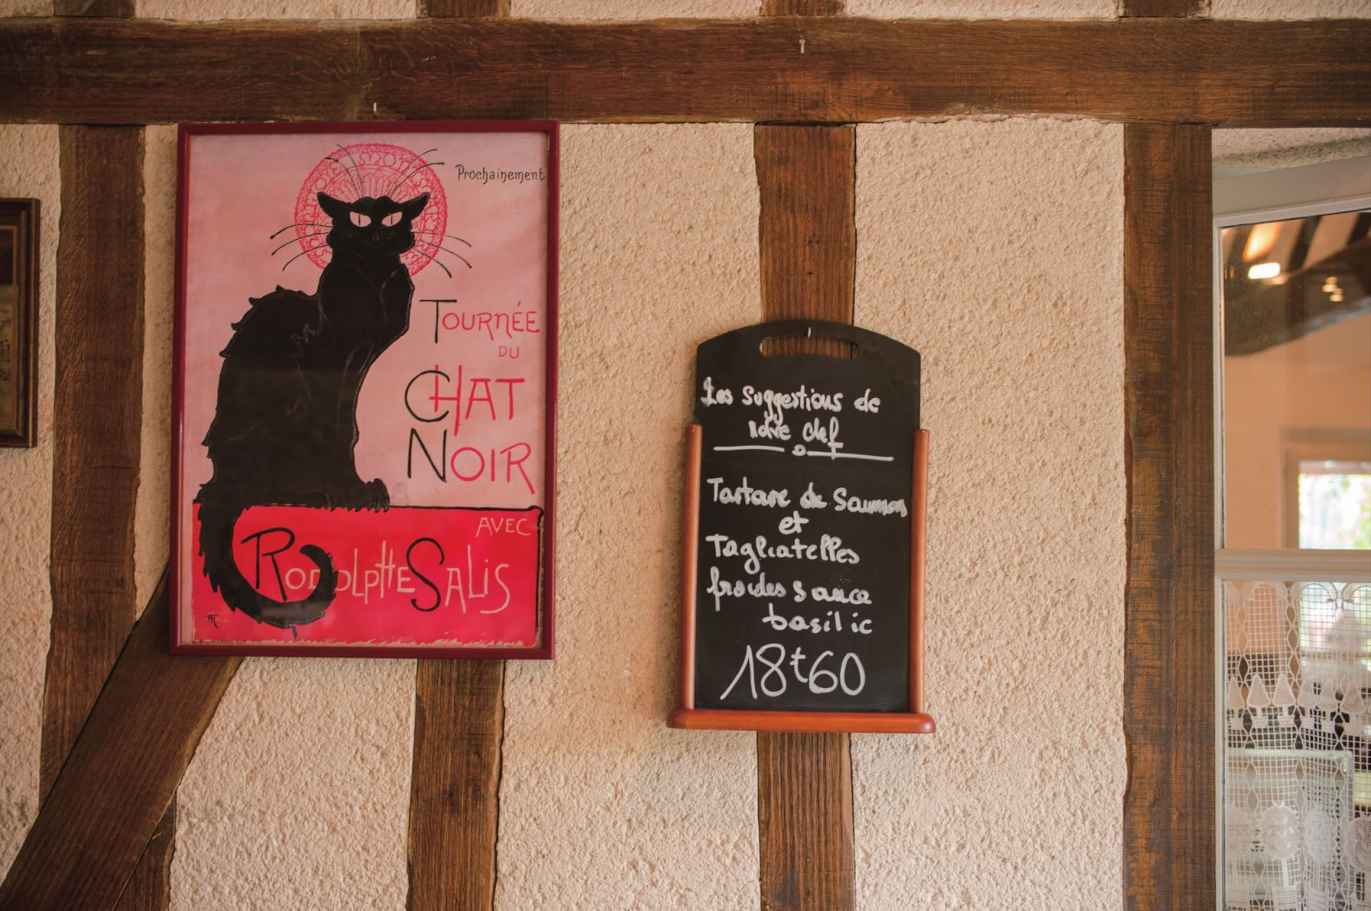 Prochainement
TOURNÉE
DU
CHAT
NOIR
AVEC
RODOLPHE SALIS
Les Suggestions de
chef
Tartare de Saumons
et
Tagliatelles
froides sauce
basilic
18t60